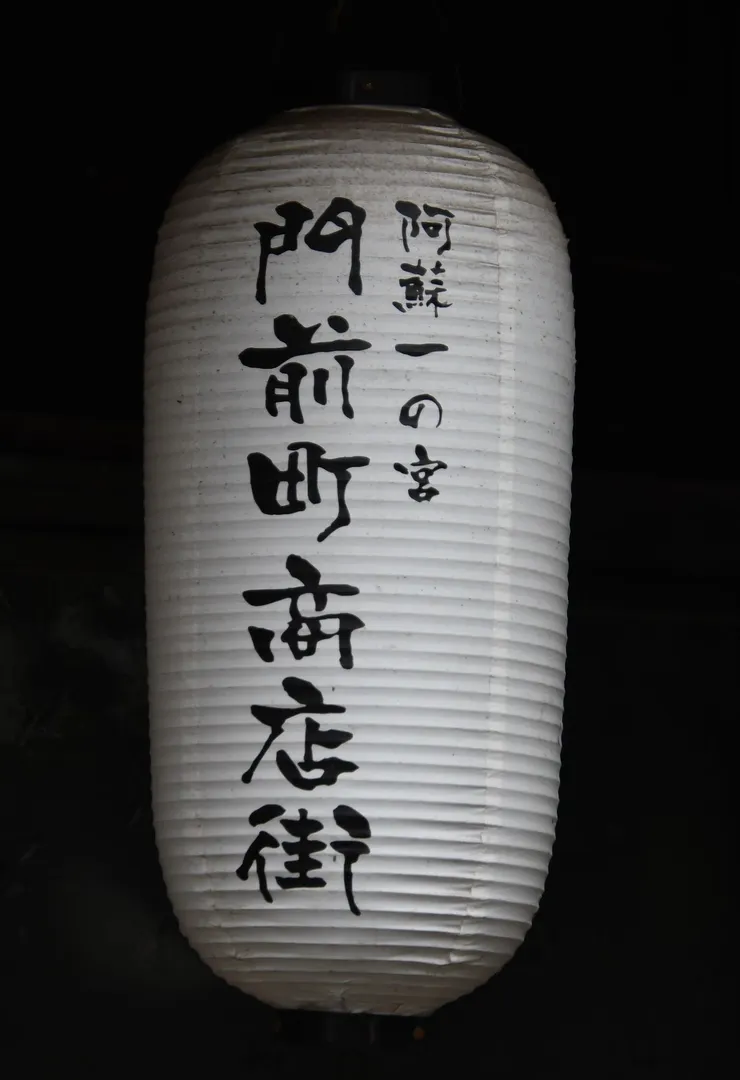 阿蘇一の宮
門前町商店街